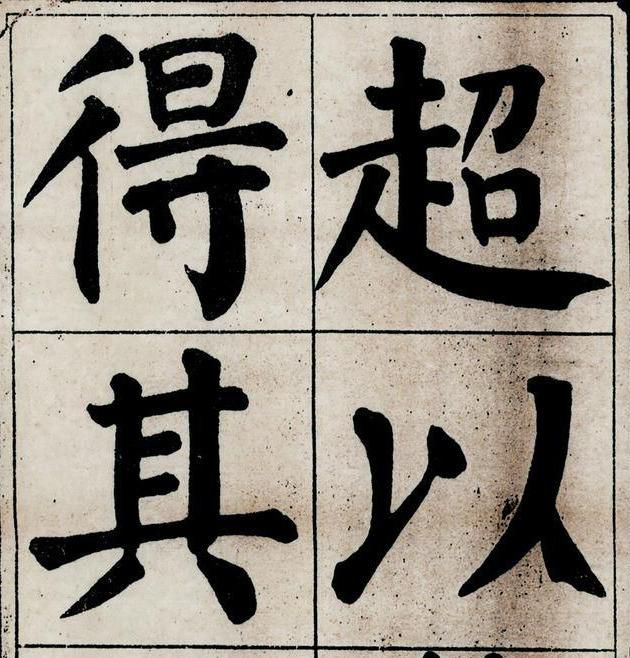 超以
得其